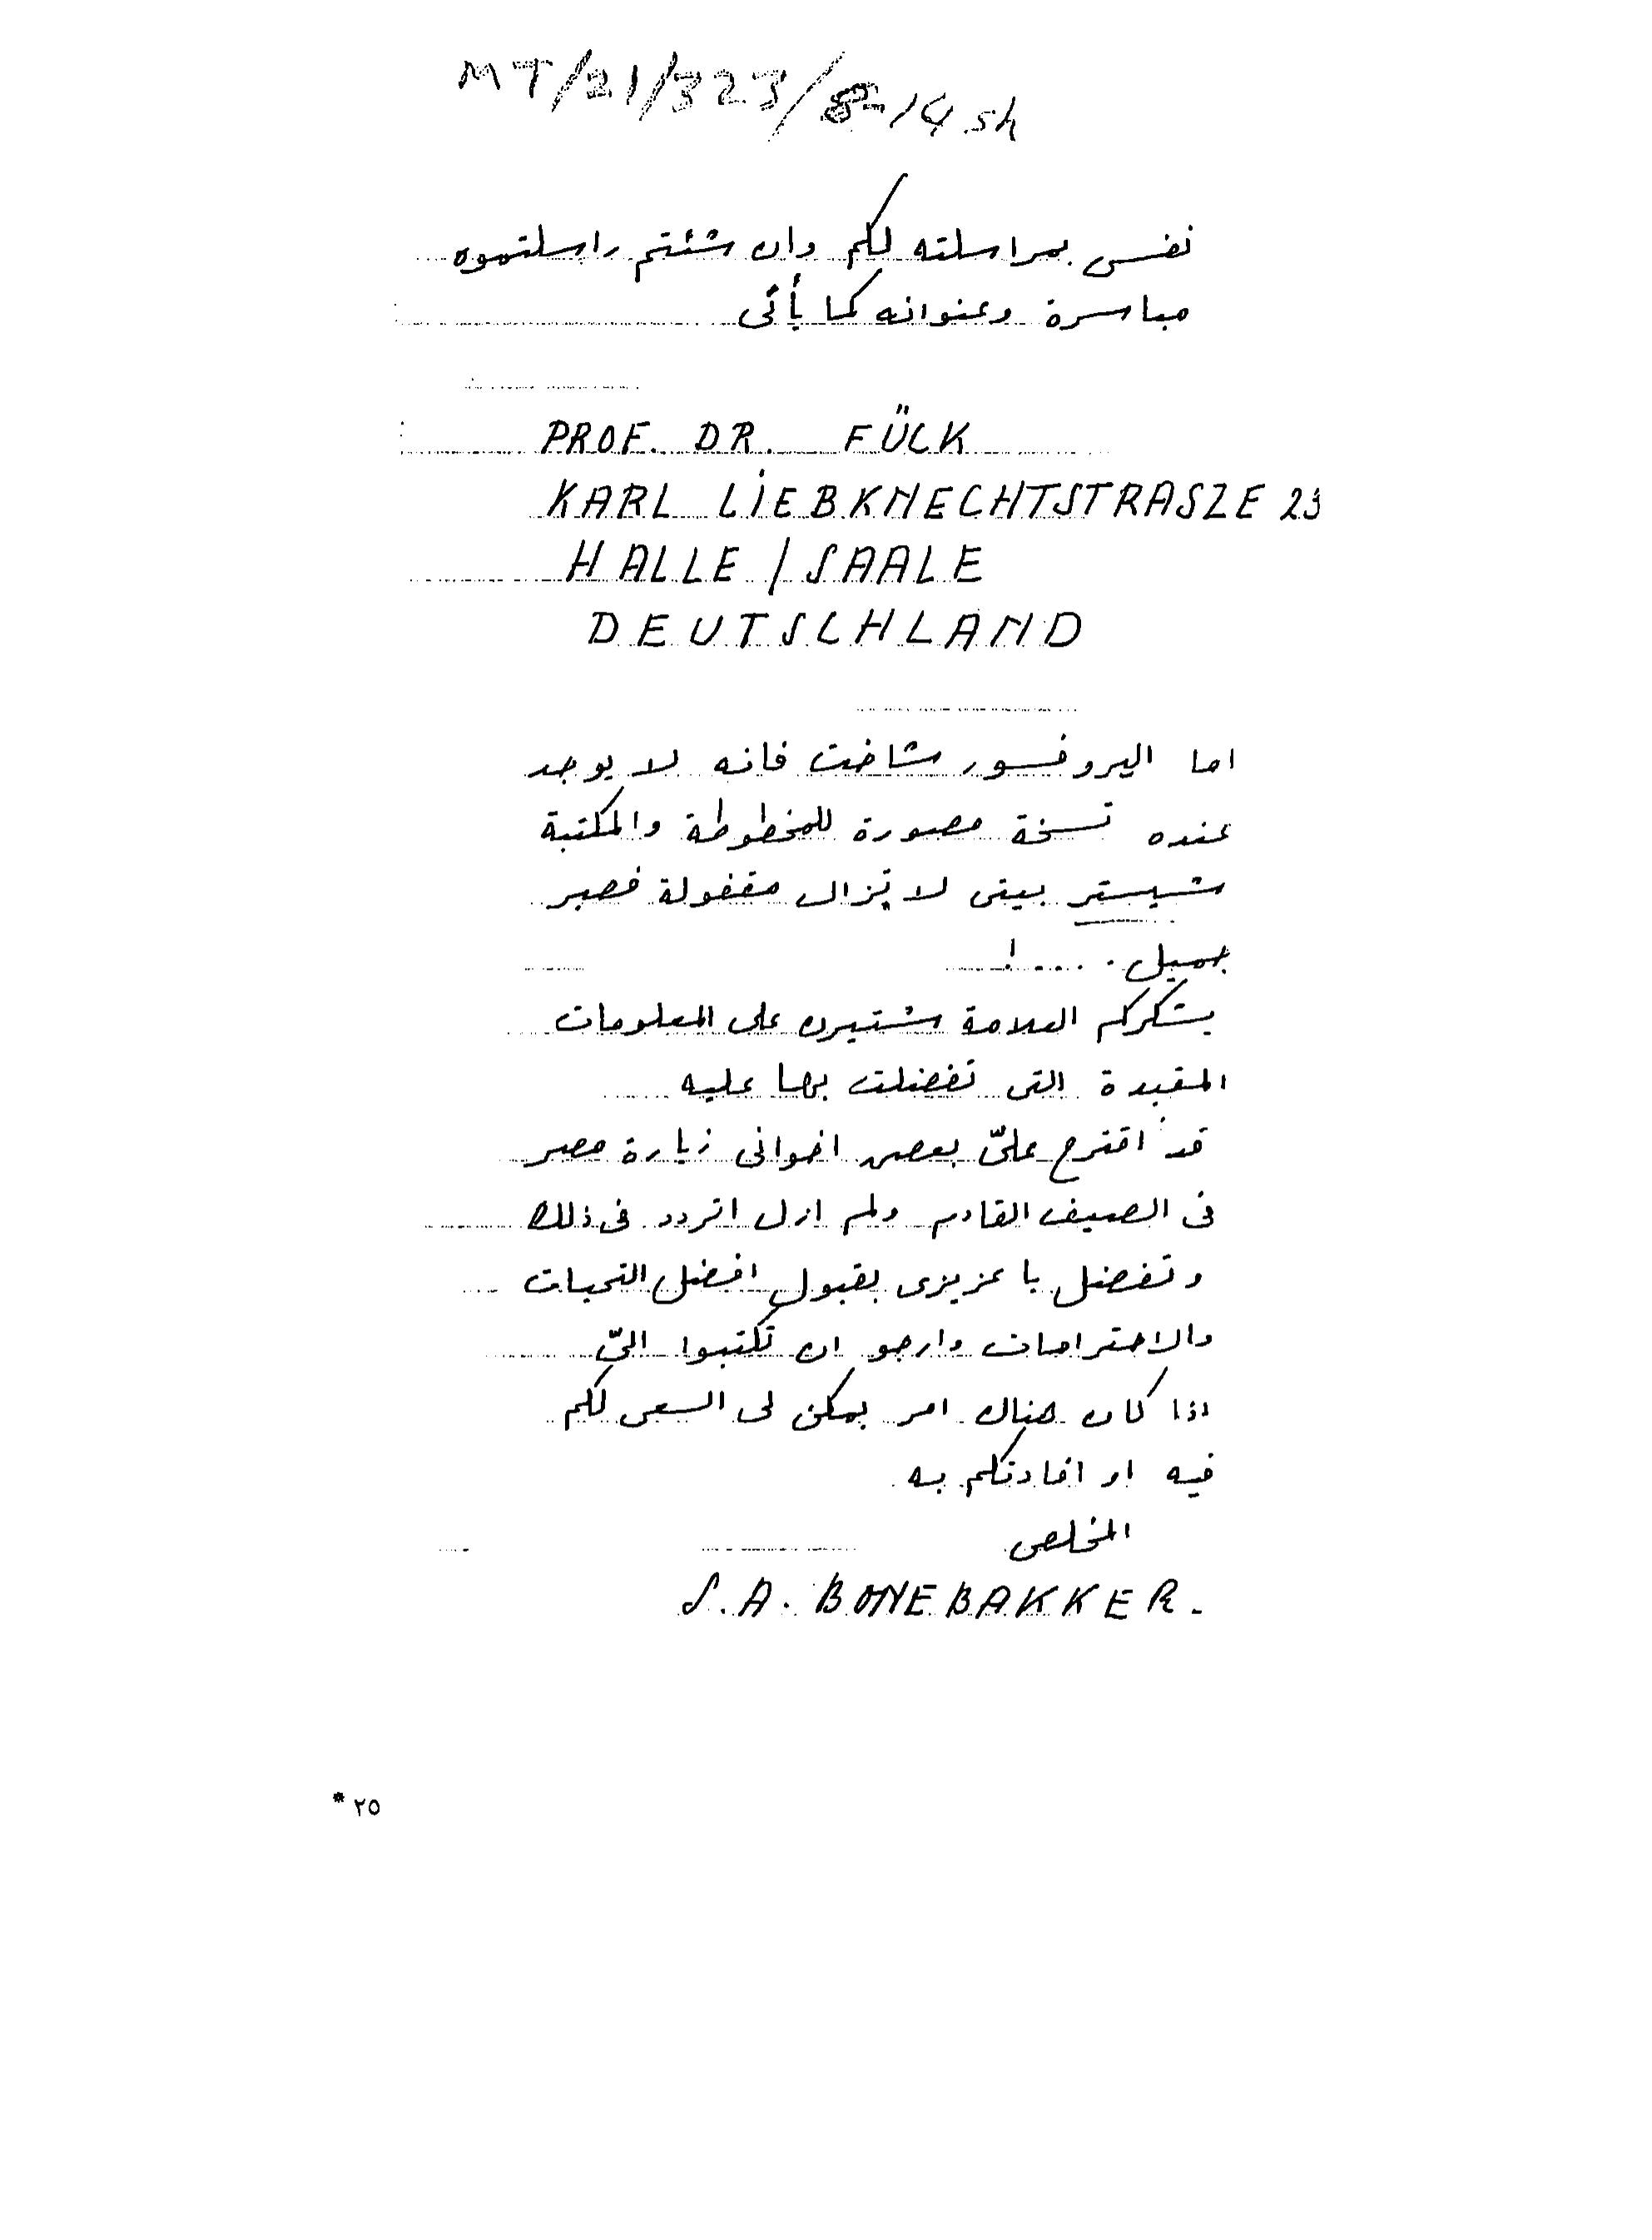 MT/21/323/8-14 sh
نفسى بمراسلته لكم وان شئتم راسلتموه
مباسرة وعنوانه كما يأتى
PROF. DR. FÜCK
KARL LIEBKNECHTSTRASZE 23
HALLE / SAALE
DEUTSCHLAND
اما البروفسور شاخت فانه لا يوجد
عنده نسخة مصورة للمخطوطة والمكتبة
شيستر بيتى لا تزال مقفولة فصبر
جميل . . . . !
يشكركم العلامة شتيرن على المعلومات
المفيدة التى تفضلت بها عليه
قد اقترح علىّ بعض اخوانى زيارة مصر
فى الصيف القادم ولم ازل اتردد فى ذلك
وتفضل يا عزيزى بقبول افضل التحيات
والاحترامات وارجو ان تكتبوا الىّ
اذا كان هناك امر يمكن لى السعى لكم
فيه او افادتكم به
المخلص
S.A. BONEBAKKER.
* ٢٥